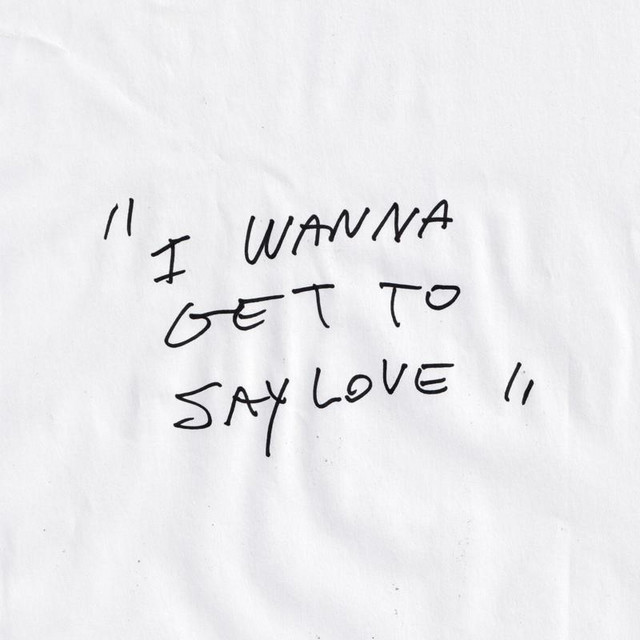 "I WANNA
GET TO
SAY LOVE"